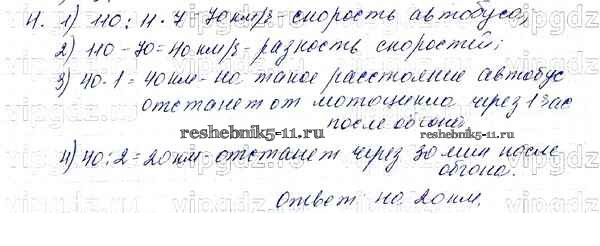 4. 1) 110 : 11 · 7 70 км/з - скорость автобуса,
2) 110 - 70 = 40 км/з - разность скоростей;
3) 40 · 1 = 40 км - на такое расстояние автобус
отстанет от мотоцикла через 1 час
после обгона
reshebnik5-11.ru
reshebnik5-11.ru
4) 40 : 2 = 20 км - отстанет через 30 мин после
обгона.
Ответ: на 20 км.